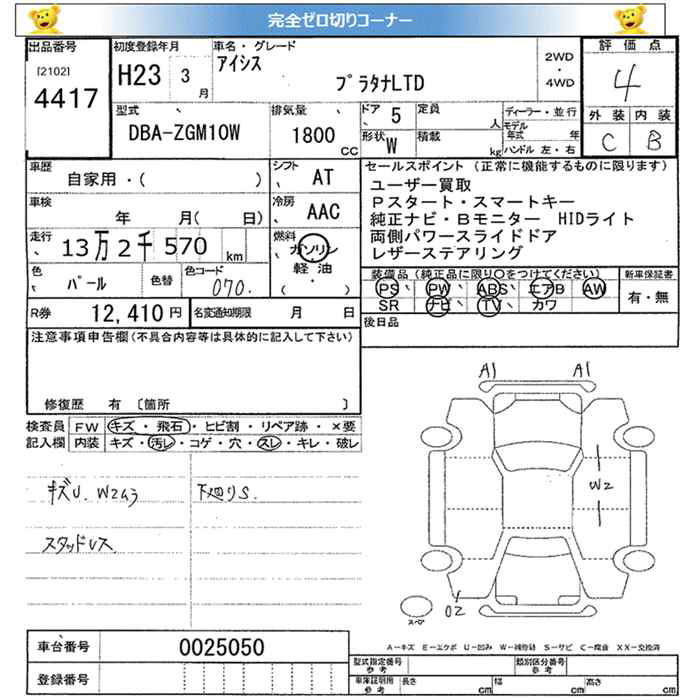 完全ゼロ切りコーナー
出品番号
[2102]
4417
初度登録年月
H23 3 月
車名・グレード
アイシス
プラタナLTD
2WD
・
4WD
評価点
4
外装 内装
C B
型式
DBA-ZGM10W
排気量
1800 CC
ドア 5
形状 W
定員 人
積載 kg
ディーラー・並行
モデル年式 年
ハンドル 左・右
車歴
自家用・( )
シフト AT
車検
年 月( 日)
冷房 AAC
走行
13万2千570 km
燃料
ガソリン
軽油
( ・ )
色
パール
色替
色コード
070.
R券 12,410円
名変通知期限 月 日
セールスポイント (正常に機能するものに限ります)
ユーザー買取
Pスタート・スマートキー
純正ナビ・Bモニター HIDライト
両側パワースライドドア
レザーステアリング
装備品(純正品に限り○をつけてください)
PS PW ABS エアB AW
SR ナビ TV カワ
新車保証書
有・無
後日品
注意事項申告欄(不具合内容等は具体的に記入して下さい)
修復歴 有 〔箇所 〕
検査員記入欄
FW キズ・飛石・ヒビ割・リペア跡・×要
内装 キズ・汚レ・コゲ・穴・スレ・キレ・破レ
キズU. W2ムラ
下廻りS.
スタッドレス
A1 A1
W2
02
スペア
A-キズ E-エクボ U-凹み W-補修跡 S-サビ C-腐食 XX-交換済
車台番号 0025050
登録番号
型式指定番号 参考
類別区分番号 参考
車庫証明用 参考
長さ cm 幅 cm 高さ cm